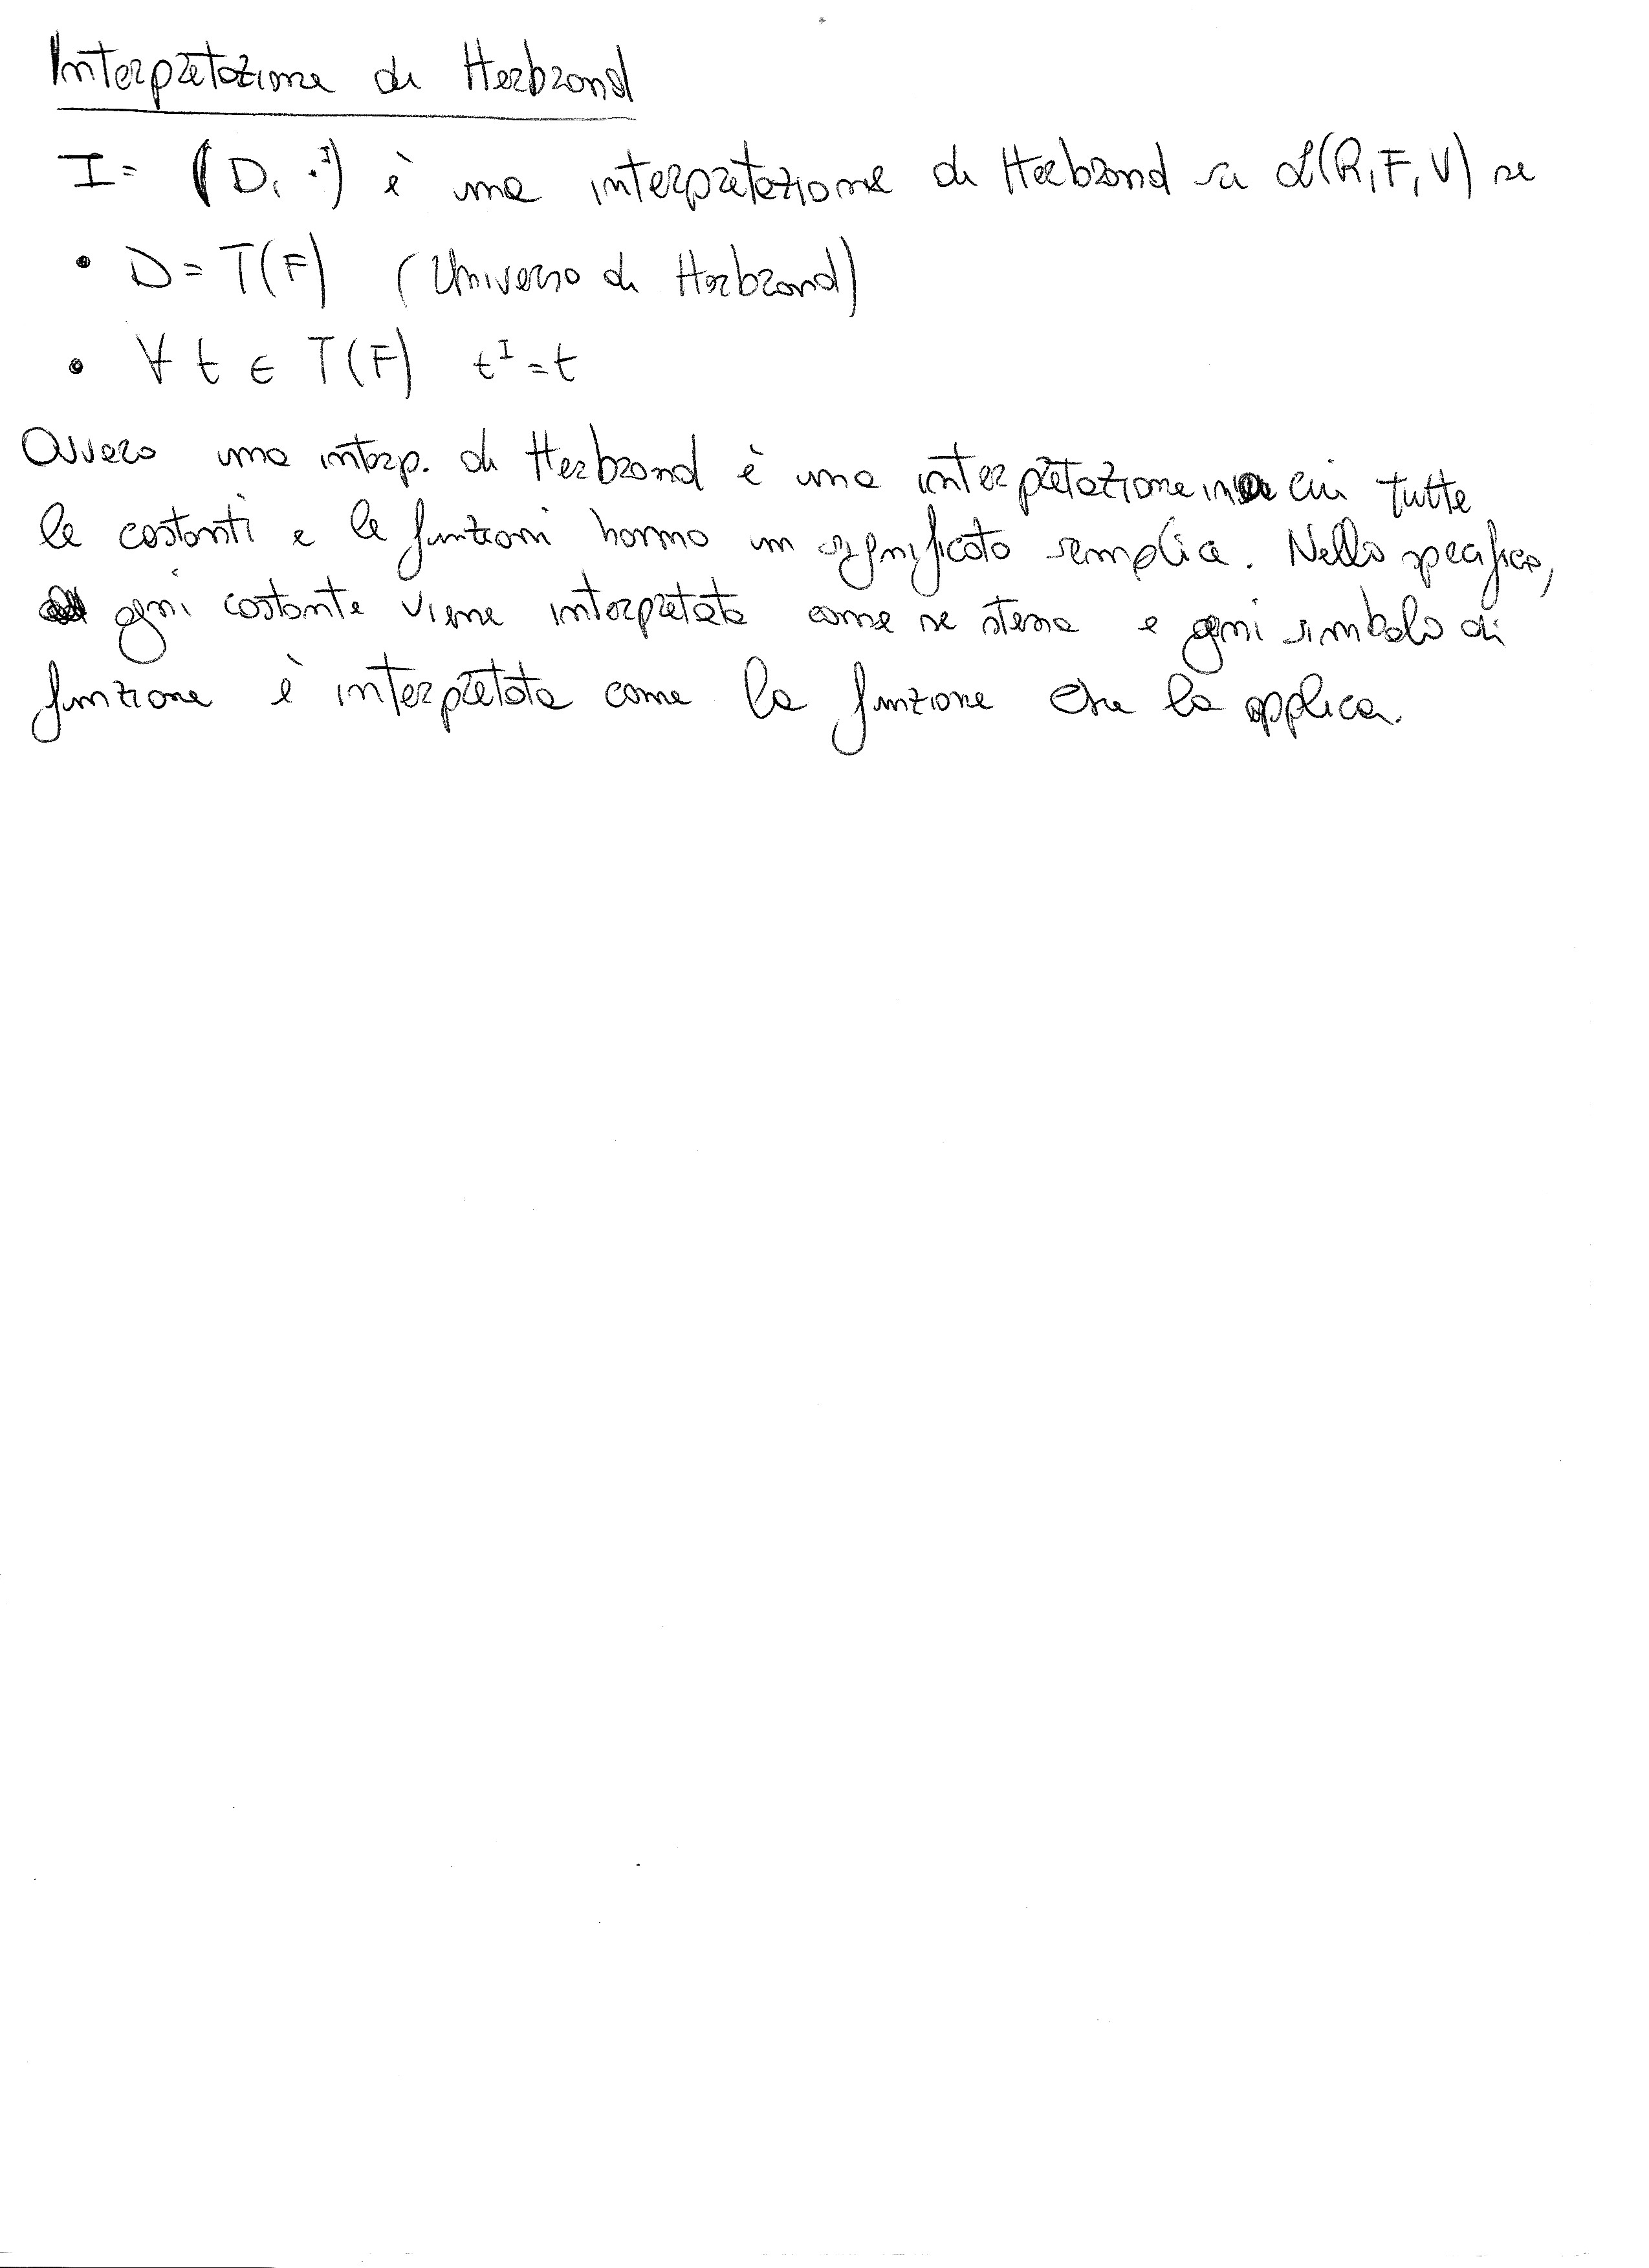 Interpretazione di Herbrand
I = (D, ·ᴵ) è una interpretazione di Herbrand su L(R, F, V) se
• D = T(F) (Universo di Herbrand)
• ∀ t ∈ T(F) tᴵ = t
Ovvero una interp. di Herbrand è una interpretazione in cui tutte
le costanti e le funzioni hanno un significato semplice. Nello specifico,
ogni costante viene interpretata come se stessa e ogni simbolo di
funzione è interpretata come la funzione che la applica.